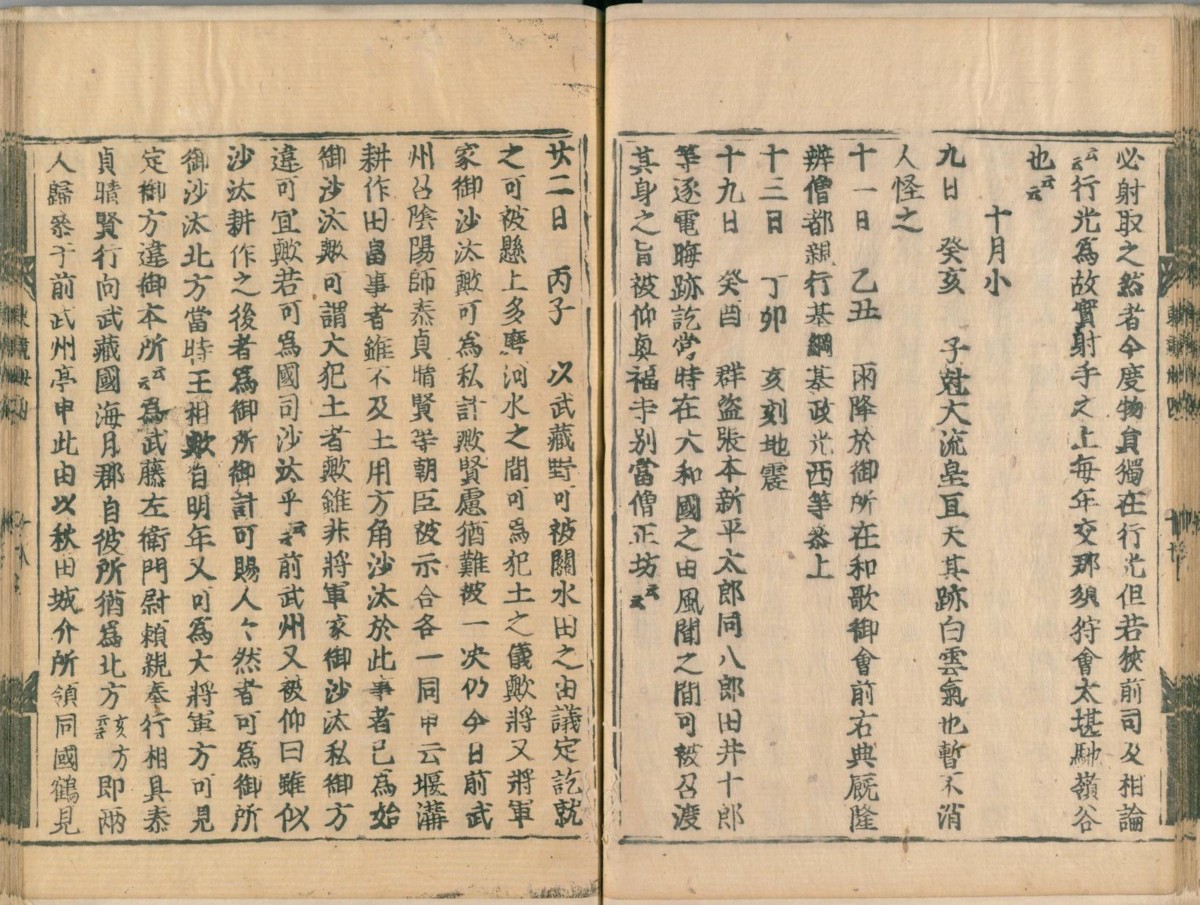 必射取之然者今度物負獨在行光但若狹前司及相論
云云行光為故實射手之上毎年交那須狩會太堪馳嶺谷
也云云
十月小
九日 癸亥 子尅大流星亘天其跡白雲氣也暫不消
人怪之
十一日 乙丑 雨降於御所在和歌御會前右典厩隆
辨僧都親行基綱基政光西等參上
十三日 丁卯 亥刻地震
十九日 癸酉 群盗張本新平太郎同八郎田井十郎
等逐電晦跡訖當時在大和國之由風聞之間可被召渡
其身之旨被仰眞福寺別當僧正坊云云
廿二日 丙子 以武藏野可被闢水田之由議定訖就
之可被懸上多磨河水之間可為犯土之儀歟將又將軍
家御沙汰歟可為私計歟賢慮猶難被一决仍今日前武
州召陰陽師泰貞晴賢等朝臣被示合各一同申云堰溝
耕作田畠事者雖不及土用方角沙汰於此事者已為始
御沙汰歟可謂大犯土者歟雖非將軍家御沙汰私御方
違可宜歟若可為國司沙汰乎云云前武州又被仰曰雖似
沙汰耕作之後者為御所御計可賜人々然者可為御所
御沙汰北方當時王相歟自明年又可為大將軍方可見
定御方違御本所云云為武藤左衛門尉頼親奉行相具泰
貞晴賢行向武藏國海月郡自彼所猶為北方云云亥方即兩
人歸參于前武州亭申此由以秋田城介所領同國鶴見